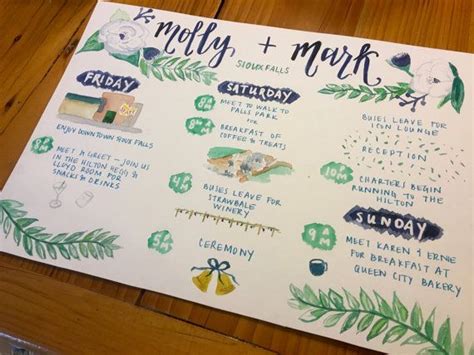 molly + mark
SIOUX FALLS
FRIDAY
ENJOY DOWNTOWN SIOUX FALLS
8 PM
MEET & GREET – JOIN US
IN THE HILTON
CLOYD ROOM FOR
SNACKS & DRINKS
SATURDAY
8 AM
MEET TO WALK TO
FALLS PARK
FOR
9 AM
BREAKFAST OF
COFFEE & TREATS
4 PM
BUSES LEAVE FOR
STRAWBALE
WINERY
CEREMONY
BUSES LEAVE FOR
ICON LOUNGE
RECEPTION
10 PM
CHARTERS BEGIN
RUNNING TO THE
HILTON
SUNDAY
9 AM
MEET KAREN & ERNIE
FOR BREAKFAST AT
QUEEN CITY BAKERY